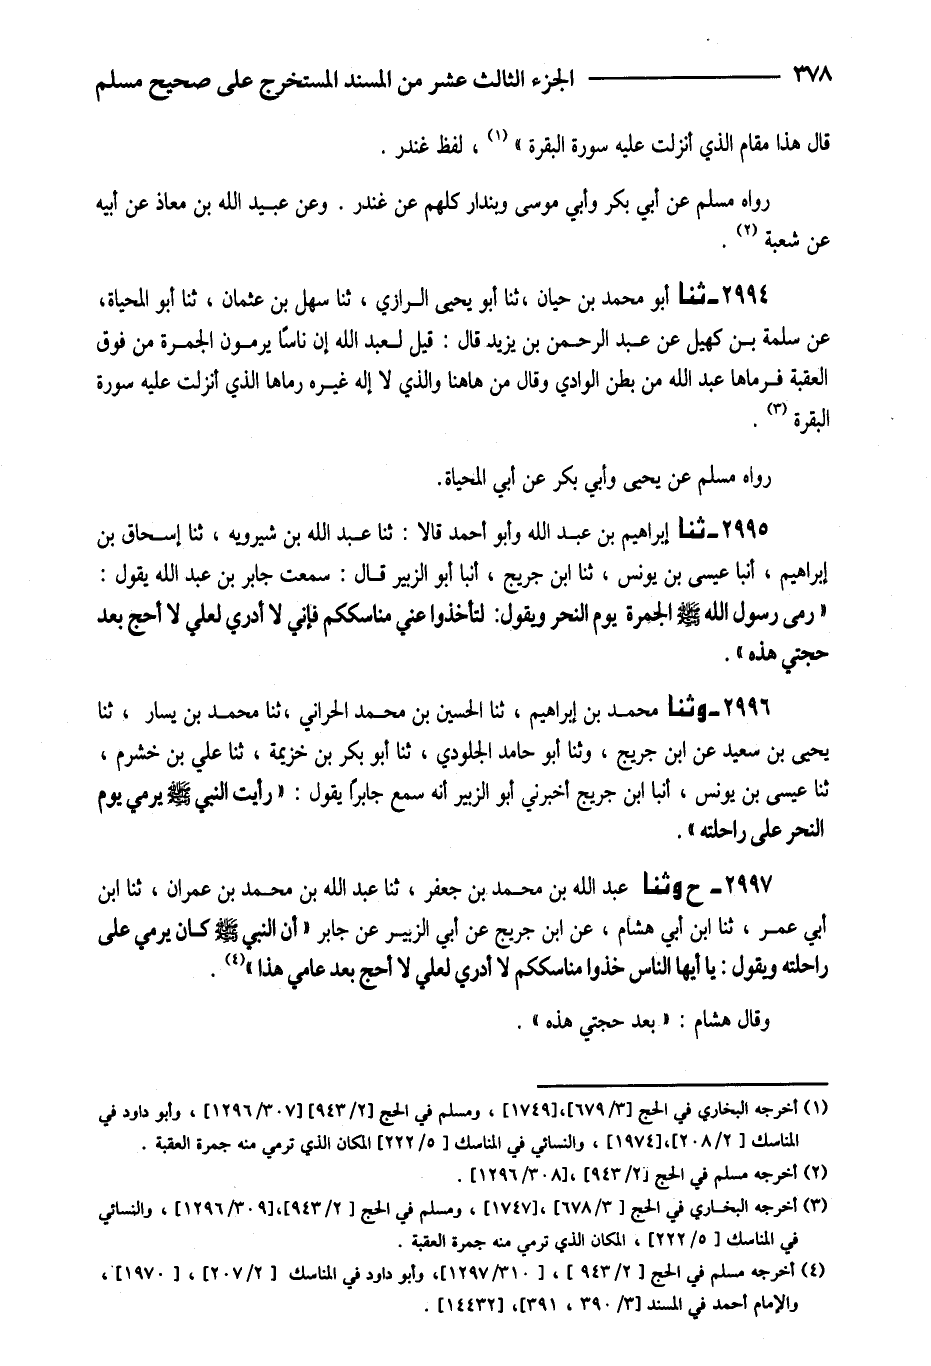 ٣٧٨ ـــــــــــــــ الجزء الثالث عشر من المسند المستخرج على صحيح مسلم
قال هذا مقام الذي أنزلت عليه سورة البقرة » (١) ، لفظ غندر .
رواه مسلم عن أبي بكر وأبي موسى وبندار كلهم عن غندر . وعن عبيد الله بن معاذ عن أبيه
عن شعبة (٢) .
٢٩٩٤ـ ثنا أبو محمد بن حيان ، ثنا أبو يحيى الرازي ، ثنا سهل بن عثمان ، ثنا أبو المحياة،
عن سلمة بن كهيل عن عبد الرحمن بن يزيد قال : قيل لعبد الله إن ناسًا يرمون الجمرة من فوق
العقبة فرماها عبد الله من بطن الوادي وقال من هاهنا والذي لا إله غيره رماها الذي أنزلت عليه سورة
البقرة (٣) .
رواه مسلم عن يحيى وأبي بكر عن أبي المحياة.
٢٩٩٥ـ ثنا إبراهيم بن عبد الله وأبو أحمد قالا : ثنا عبد الله بن شيرويه ، ثنا إسحاق بن
إبراهيم ، أنبا عيسى بن يونس ، ثنا ابن جريج ، أنبا أبو الزبير قال : سمعت جابر بن عبد الله يقول :
« رمى رسول الله ﷺ الجمرة يوم النحر ويقول: لتأخذوا عني مناسككم فإني لا أدري لعلي لا أحج بعد
حجتي هذه » .
٢٩٩٦ـ وثنا محمد بن إبراهيم ، ثنا الحسين بن محمد الحراني ، ثنا محمد بن يسار ، ثنا
يحيى بن سعيد عن ابن جريج ، وثنا أبو حامد الجلودي ، ثنا أبو بكر بن خزيمة ، ثنا علي بن خشرم ،
ثنا عيسى بن يونس ، أنبا ابن جريج أخبرني أبو الزبير أنه سمع جابراً يقول : « رأيت النبي ﷺ يرمي يوم
النحر على راحلته » .
٢٩٩٧ـ ح وثنا عبد الله بن محمد بن جعفر ، ثنا عبد الله بن محمد بن عمران ، ثنا ابن
أبي عمر ، ثنا ابن أبي هشام ، عن ابن جريج عن أبي الزبير عن جابر « أن النبي ﷺ كان يرمي على
راحلته ويقول : يا أيها الناس خذوا مناسككم لا أدري لعلي لا أحج بعد عامي هذا » (٤) .
وقال هشام : « بعد حجتي هذه » .
(١) أخرجه البخاري في الحج [٦٧٩/٣]،[١٧٤٩] ، ومسلم في الحج [٩٤٣/٢] [١٢٩٦/٣٠٧] ، وأبو داود في
المناسك [ ٢٠٨/٢]،[١٩٧٤] ، والنسائي في المناسك [ ٢٢٢/٥] المكان الذي ترمي منه جمرة العقبة .
(٢) أخرجه مسلم في الحج [٩٤٣/٢] ،[١٢٩٦/٣٠٨] .
(٣) أخرجه البخاري في الحج [ ٦٧٨/٣] ،[١٧٤٧] ، ومسلم في الحج [ ٩٤٣/٢]،[١٢٩٦/٣٠٩] ، والنسائي
في المناسك [ ٢٢٢/٥] ، المكان الذي ترمي منه جمرة العقبة .
(٤) أخرجه مسلم في الحج [ ٩٤٣/٢ ] ، [ ١٢٩٧/٣١٠]، وأبو داود في المناسك [ ٢٠٧/٢] ، [ ١٩٧٠] ،
والإمام أحمد في المسند [٣/ ٣٩٠ ، ٣٩١]، [١٤٤٣٢] .